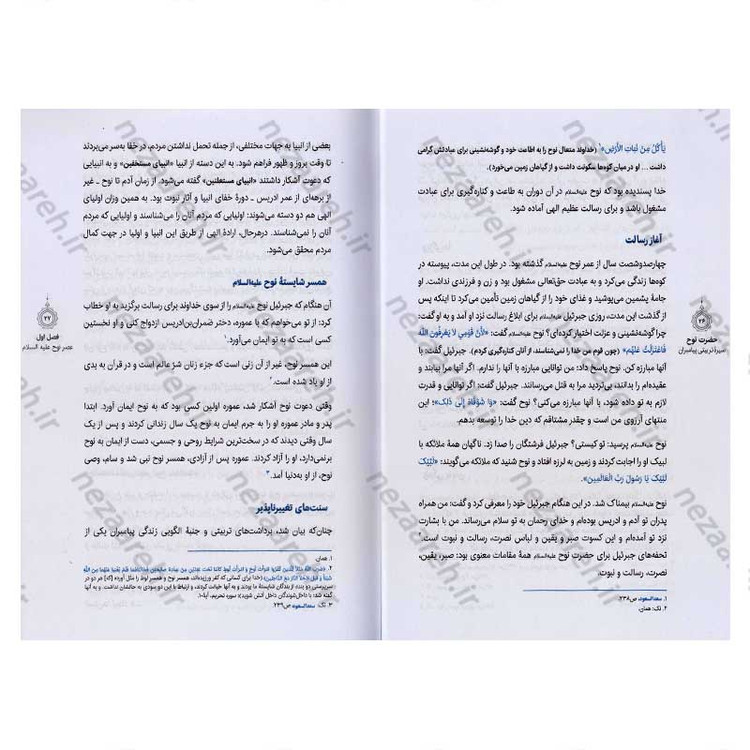 یَأْکُلُ مِنْ نَبَاتِ الْأَرْضِ»¹ (خداوند متعال نوح را به اطاعت خود و گوشه‌نشینی برای عبادتش گرامی
داشت ... او در میان کوه‌ها سکونت داشت و از گیاهان زمین می‌خورد.)
خدا پسندیده بود که نوح علیه‌السلام در آن دوران به طاعت و کناره‌گیری برای عبادت
مشغول باشد و برای رسالت عظیم الهی آماده شود.
آغاز رسالت
چهارصدوشصت سال از عمر نوح علیه‌السلام گذشته بود. در طول این مدت، پیوسته در
کوه‌ها زندگی می‌کرد و به عبادت حق‌تعالی مشغول بود و زن و فرزندی نداشت. او
جامهٔ پشمین می‌پوشید و غذای خود را از گیاهان زمین تأمین می‌کرد تا اینکه پس
از گذشت این مدت، روزی جبرئیل علیه‌السلام برای ابلاغ رسالت نزد او آمد و به او گفت:
چرا گوشه‌نشینی و عزلت اختیار کرده‌ای؟ نوح علیه‌السلام گفت: «لِأَنَّ قَوْمِي لَا يَعْرِفُونَ اللَّهَ
فَاعْتَزَلْتُ عَنْهُمْ» (چون قوم من خدا را نمی‌شناسند، از آنان کناره‌گیری کردم). جبرئیل گفت: با
آنها مبارزه کن. نوح پاسخ داد: من توانایی مبارزه با آنها را ندارم. اگر آنها مرا بیابند و
عقیده‌ام را بدانند، بی‌تردید مرا به قتل می‌رسانند. جبرئیل گفت: اگر توانایی و قدرت
لازم به تو داده شود، با آنها مبارزه می‌کنی؟ نوح گفت: «وَا شَوْقَاهُ إِلَى ذَلِكَ»؛ این
منتهای آرزوی من است و چقدر مشتاقم که دین خدا را توسعه بدهم.
نوح علیه‌السلام پرسید: تو کیستی؟ جبرئیل فرشتگان را صدا زد. ناگهان همهٔ ملائکه با
لبیک او را اجابت کردند و زمین به لرزه افتاد و نوح شنید که ملائکه می‌گویند: «لَبَّيْكَ
لَبَّيْكَ يَا رَسُولَ رَبِّ الْعَالَمِينَ».
نوح علیه‌السلام بیمناک شد. در این هنگام جبرئیل خود را معرفی کرد و گفت: من همراه
پدران تو آدم و ادریس بوده‌ام و خدای رحمان به تو سلام می‌رساند. من با بشارت
نزد تو آمده‌ام و این کسوت صبر و یقین و لباس نصرت، رسالت و نبوت است.
تحفه‌های جبرئیل برای حضرت نوح علیه‌السلام همهٔ مقامات معنوی بود: صبر، یقین،
نصرت، رسالت و نبوت.
۱. سعدالسعود، ص۲۳۸.
۲. نک: همان.
۲۶
حضرت نوح
سیرهٔ تربیتی پیامبران
بعضی از انبیا به جهات مختلفی، از جمله تحمل نداشتن مردم، در خفا به‌سر می‌بردند
تا وقت بروز و ظهور فراهم شود. به این دسته از انبیا «انبیای مستخفین» و به انبیایی
که دعوت آشکار داشتند «انبیای مستعلنین» گفته می‌شود. از زمان آدم تا نوح ـ غیر
از برهه‌ای از عمر ادریس ـ دورهٔ خفای انبیا و آثار نبوت بود. به همین وزان اولیای
الهی هم دو دسته می‌شوند: اولیایی که مردم آنان را می‌شناسند و اولیایی که مردم
آنان را نمی‌شناسند. درهرحال، ارادهٔ الهی از طریق این انبیا و اولیا در جهت کمال
مردم محقق می‌شود.
همسر شایستهٔ نوح علیه‌السلام
آن هنگام که جبرئیل علیه‌السلام نوح علیه‌السلام را از سوی خداوند برای رسالت برگزید به او خطاب
کرد: از تو می‌خواهم که با عموره، دختر ضمران‌بن‌ادریس ازدواج کنی و او نخستین
کسی است که به تو ایمان می‌آورد.¹
این همسر نوح، غیر از آن زنی است که جزء زنان شرّ عالم است و در قرآن به بدی
از او یاد شده است.²
وقتی دعوت نوح آشکار شد، عموره اولین کسی بود که به نوح ایمان آورد. ابتدا
پدر و مادر عموره او را به جرم ایمان به نوح یک سال زندانی کردند و پس از یک
سال وقتی دیدند که در سخت‌ترین شرایط روحی و جسمی، دست از ایمان به نوح
برنمی‌دارد، او را آزاد کردند. عموره پس از آزادی، همسر نوح نبی شد و سام، وصی
نوح، از او به‌دنیا آمد.³
سنت‌های تغییرناپذیر
چنان‌که بیان شد، برداشت‌های تربیتی و جنبهٔ الگویی زندگی پیامبران یکی از
۱. همان.
۲. «ضَرَبَ اللَّهُ مَثَلًا لِلَّذِينَ كَفَرُوا امْرَأَتَ نُوحٍ وَامْرَأَتَ لُوطٍ كَانَتَا تَحْتَ عَبْدَيْنِ مِنْ عِبَادِنَا صَالِحَيْنِ فَخَانَتَاهُمَا فَلَمْ يُغْنِيَا عَنْهُمَا مِنَ اللَّهِ
شَيْئًا وَقِيلَ ادْخُلَا النَّارَ مَعَ الدَّاخِلِينَ» (خدا برای کسانی که کفر ورزیده‌اند، همسر نوح و همسر لوط را مثل آورده [که] هر دو در
سرپرستی دو بنده از بندگان شایستهٔ ما بودند و به آنها خیانت کردند، و ارتباط با این دو سودی به حالشان نداشت. و به آنها
گفته شد: با داخل‌شوندگان داخل آتش شوید)؛ سوره تحریم، آیهٔ۱۰.
۳. نک: سعدالسعود، ص۲۳۹.
۲۷
فصل اول
عصر نوح علیه السلام
nezaareh.ir